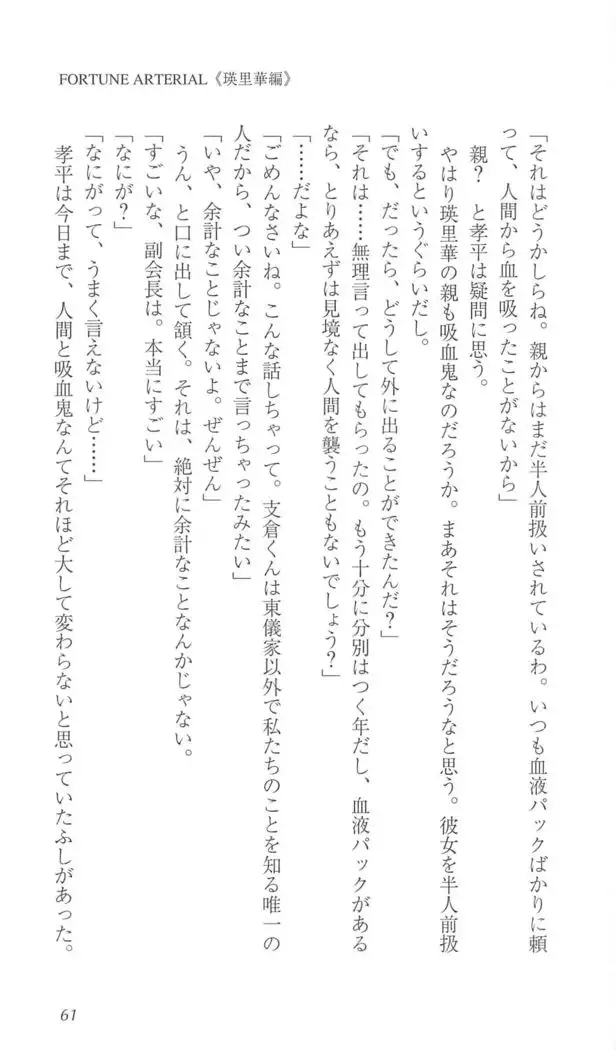 FORTUNE ARTERIAL《瑛里華編》
「それはどうかしらね。親からはまだ半人前扱いされているわ。いつも血液パックばかりに頼
って、人間から血を吸ったことがないから」
親?　と孝平は疑問に思う。
やはり瑛里華の親も吸血鬼なのだろうか。まあそれはそうだろうなと思う。彼女を半人前扱
いするというぐらいだし。
「でも、だったら、どうして外に出ることができたんだ?」
「それは……無理言って出してもらったの。もう十分に分別はつく年だし、血液パックがある
なら、とりあえずは見境なく人間を襲うこともないでしょう?」
「……だよな」
「ごめんなさいね。こんな話しちゃって。支倉くんは東儀家以外で私たちのことを知る唯一の
人だから、つい余計なことまで言っちゃったみたい」
「いや、余計なことじゃないよ。ぜんぜん」
うん、と口に出して頷く。それは、絶対に余計なことなんかじゃない。
「すごいな、副会長は。本当にすごい」
「なにが?」
「なにがって、うまく言えないけど……」
孝平は今日まで、人間と吸血鬼なんてそれほど大して変わらないと思っていたふしがあった。
61